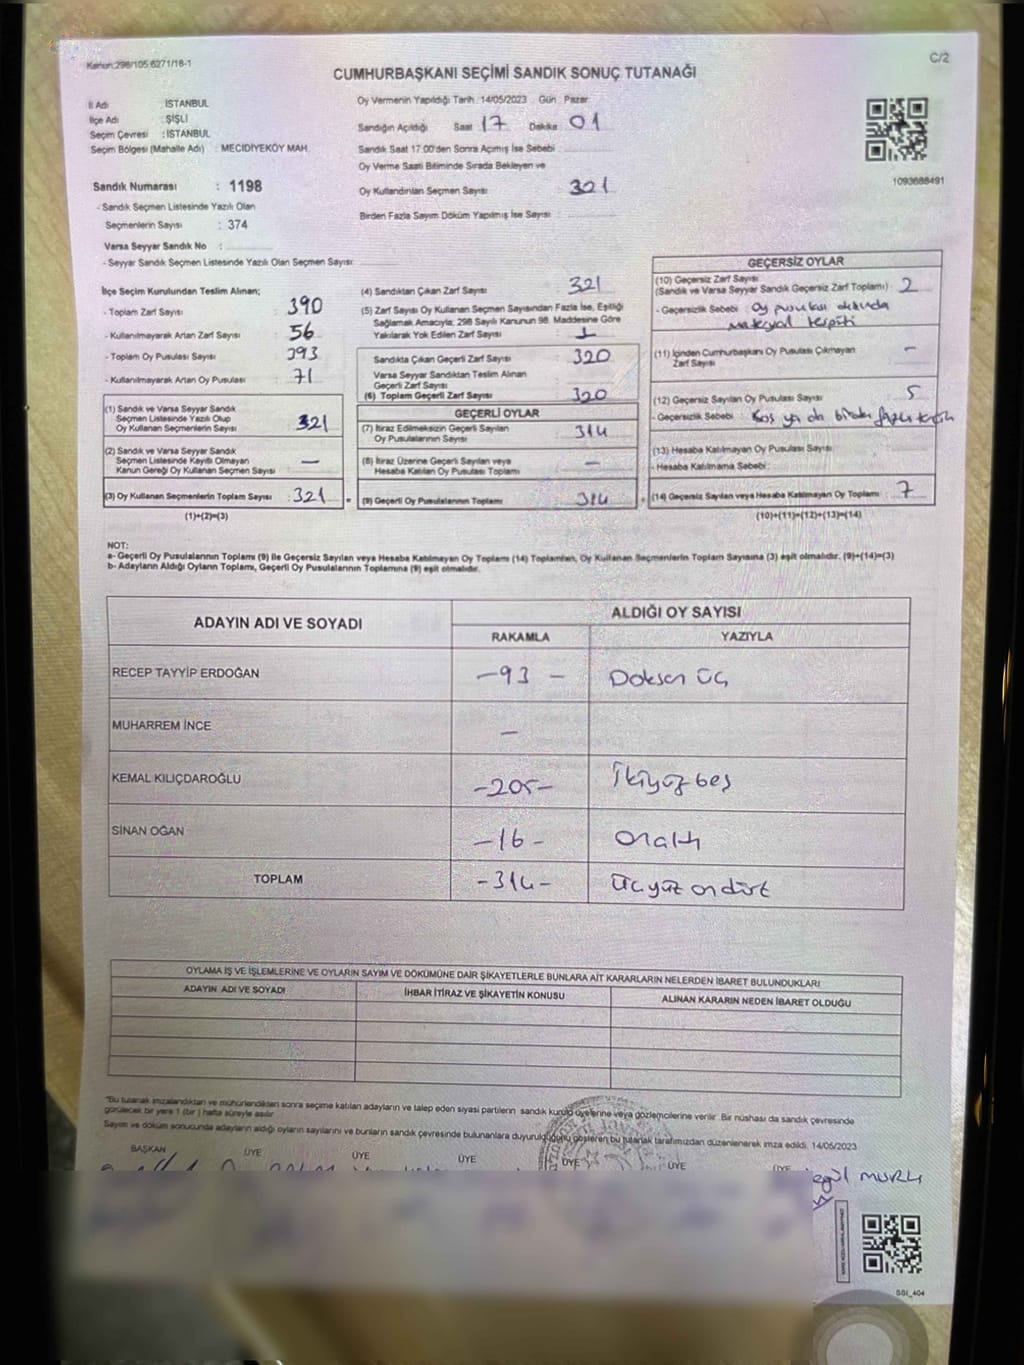 Kanun:298/105.6271/18-1
C/2
CUMHURBAŞKANI SEÇİMİ SANDIK SONUÇ TUTANAĞI
İl Adı : İSTANBUL
İlçe Adı : ŞİŞLİ
Seçim Çevresi : İSTANBUL
Seçim Bölgesi (Mahalle Adı) : MECİDİYEKÖY MAH.
Sandık Numarası : 1198
- Sandık Seçmen Listesinde Yazılı Olan
Seçmenlerin Sayısı : 374
Varsa Seyyar Sandık No :
- Seyyar Sandık Seçmen Listesinde Yazılı Olan Seçmen Sayısı:
Oy Vermenin Yapıldığı Tarih :14/05/2023 Gün : Pazar
Sandığın Açıldığı Saat 17 Dakika 01
Sandık Saat 17:00'den Sonra Açımış İse Sebebi :
Oy Verme Saati Bitiminde Sırada Bekleyen ve
Oy Kullandırılan Seçmen Sayısı : 321
Birden Fazla Sayım Döküm Yapılmış İse Sayısı :
1093688491
İlçe Seçim Kurulundan Teslim Alınan;
- Toplam Zarf Sayısı : 390
- Kullanılmayarak Artan Zarf Sayısı : 56
- Toplam Oy Pusulası Sayısı : 393
- Kullanılmayarak Artan Oy Pusulası : 71
(1) Sandık ve Varsa Seyyar Sandık
Seçmen Listesinde Yazılı Olup
Oy Kullanan Seçmenlerin Sayısı : 321
(2) Sandık ve Varsa Seyyar Sandık
Seçmen Listesinde Kayıtlı Olmayan
Kanun Gereği Oy Kullanan Seçmen Sayısı : —
(3) Oy Kullanan Seçmenlerin Toplam Sayısı : 321
(1)+(2)=(3)
(4) Sandıktan Çıkan Zarf Sayısı : 321
(5) Zarf Sayısı Oy Kullanan Seçmen Sayısından Fazla İse, Eşitliği
Sağlamak Amacıyla; 298 Sayılı Kanunun 98. Maddesine Göre
Yakılarak Yok Edilen Zarf Sayısı : 1
Sandıkta Çıkan Geçerli Zarf Sayısı : 320
Varsa Seyyar Sandıktan Teslim Alınan
Geçerli Zarf Sayısı :
(6) Toplam Geçerli Zarf Sayısı : 320
GEÇERLİ OYLAR
(7) İtiraz Edilmeksizin Geçerli Sayılan
Oy Pusulalarının Sayısı : 314
(8) İtiraz Üzerine Geçerli Sayılan veya
Hesaba Katılan Oy Pusulası Toplamı : —
(9) Geçerli Oy Pusulalarının Toplamı : 314
GEÇERSİZ OYLAR
(10) Geçersiz Zarf Sayısı
(Sandık ve Varsa Seyyar Sandık Geçersiz Zarf Toplamı) : 2
- Geçersizlik Sebebi : Oy pusulası dışında
materyal tespiti
(11) İçinden Cumhurbaşkanı Oy Pusulası Çıkmayan
Zarf Sayısı : —
(12) Geçersiz Sayılan Oy Pusulası Sayısı : 5
- Geçersizlik Sebebi : Boş ya da birden fazla tercih
(13) Hesaba Katılmayan Oy Pusulası Sayısı :
- Hesaba Katılmama Sebebi :
(14) Geçersiz Sayılan veya Hesaba Katılmayan Oy Toplamı : 7
(10)+(11)+(12)+(13)=(14)
NOT:
a- Geçerli Oy Pusulalarının Toplamı (9) ile Geçersiz Sayılan veya Hesaba Katılmayan Oy Toplamı (14) Toplamları, Oy Kullanan Seçmenlerin Toplam Sayısına (3) eşit olmalıdır. (9)+(14)=(3)
b- Adayların Aldığı Oyların Toplamı, Geçerli Oy Pusulalarının Toplamına (9) eşit olmalıdır.
ADAYIN ADI VE SOYADI ALDIĞI OY SAYISI
RAKAMLA YAZIYLA
RECEP TAYYİP ERDOĞAN -93- Doksan üç
MUHARREM İNCE —
KEMAL KILIÇDAROĞLU -205- İkiyüzbeş
SİNAN OĞAN -16- Onaltı
TOPLAM -314- Üçyüz ondört
OYLAMA İŞ VE İŞLEMLERİNE VE OYLARIN SAYIM VE DÖKÜMÜNE DAİR ŞİKAYETLERLE BUNLARA AİT KARARLARIN NELERDEN İBARET BULUNDUKLARI
ADAYIN ADI VE SOYADI İHBAR İTİRAZ VE ŞİKAYETİN KONUSU ALINAN KARARIN NEDEN İBARET OLDUĞU
"Bu tutanak imzalandıktan ve mühürlendikten sonra seçime katılan adayların ve talep eden siyasi partilerin sandık kurulu üyelerine veya gözlemcilerine verilir. Bir nüshası da sandık çevresinde
görülecek bir yere 1 (bir) hafta süreyle asılır.
Sayım ve döküm sonucunda adayların aldığı oyların sayılarını ve bunların sandık çevresinde bulunanlara duyurulduğunu gösteren bu tutanak tarafımızdan düzenlenerek imza edildi. 14/05/2023
BAŞKAN ÜYE ÜYE ÜYE ÜYE ÜYE ÜYE
SSI_404